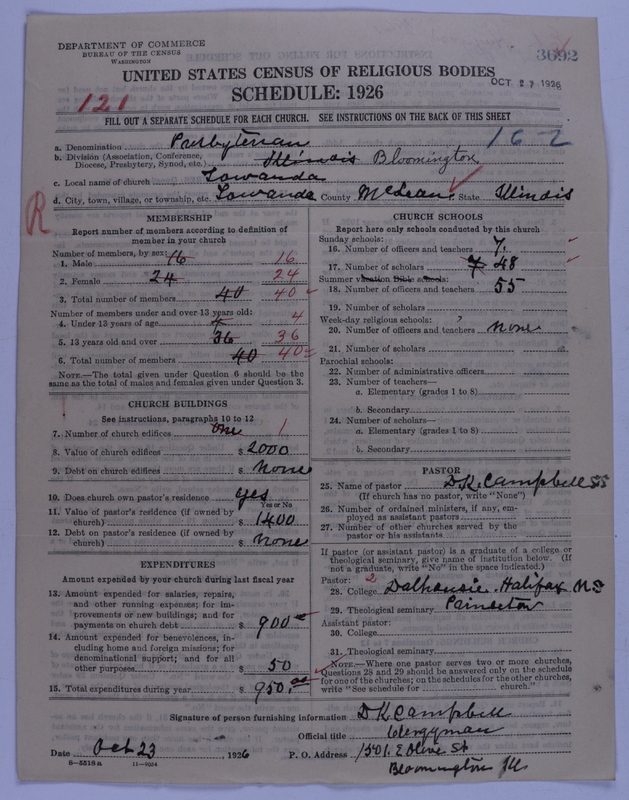 DEPARTMENT OF COMMERCE
BUREAU OF THE CENSUS
WASHINGTON
3692
UNITED STATES CENSUS OF RELIGIOUS BODIES
OCT 27 1926
SCHEDULE: 1926
121
FILL OUT A SEPARATE SCHEDULE FOR EACH CHURCH. SEE INSTRUCTIONS ON THE BACK OF THIS SHEET
16-2
a. Denomination Presbyterian
b. Division (Association, Conference, Diocese, Presbytery, Synod, etc.) Illinois Bloomington
c. Local name of church Towanda
d. City, town, village, or township, etc. Towanda County McLean State Illinois
R
MEMBERSHIP
Report number of members according to definition of
member in your church
Number of members, by sex:
1. Male 16 16
2. Female 24 24
3. Total number of members 40 40
Number of members under and over 13 years old:
4. Under 13 years of age 4 4
5. 13 years old and over 36 36
6. Total number of members 40 40
NOTE.—The total given under Question 6 should be the
same as the total of males and females given under Question 3.
CHURCH BUILDINGS
See instructions, paragraphs 10 to 12
7. Number of church edifices one 1
8. Value of church edifices $ 2000
9. Debt on church edifices $ None
10. Does church own pastor's residence yes
Yes or No
11. Value of pastor's residence (if owned by
church) $ 1400
12. Debt on pastor's residence (if owned by
church) $ none
EXPENDITURES
Amount expended by your church during last fiscal year
13. Amount expended for salaries, repairs,
and other running expenses; for im-
provements or new buildings; and for
payments on church debt $ 900
14. Amount expended for benevolences, in-
cluding home and foreign missions; for
denominational support; and for all
other purposes $ 50
15. Total expenditures during year $ 950.00
CHURCH SCHOOLS
Report here only schools conducted by this church
Sunday schools:
16. Number of officers and teachers 7.
17. Number of scholars 7 48
Summer vacation Bible schools:
18. Number of officers and teachers 55
19. Number of scholars
Week-day religious schools:
20. Number of officers and teachers none
21. Number of scholars
Parochial schools:
22. Number of administrative officers
23. Number of teachers—
a. Elementary (grades 1 to 8)
b. Secondary
24. Number of scholars—
a. Elementary (grades 1 to 8)
b. Secondary
PASTOR
25. Name of pastor D.K. Campbell SS
(If church has no pastor, write "None")
26. Number of ordained ministers, if any, em-
ployed as assistant pastors
27. Number of other churches served by the
pastor or his assistants
If pastor (or assistant pastor) is a graduate of a college or
theological seminary, give name of institution below. (If
not a graduate, write "No" in the space indicated.)
Pastor: 2
28. College Dalhousie, Halifax N S
29. Theological seminary Princeton
Assistant pastor:
30. College
31. Theological seminary
NOTE.—Where one pastor serves two or more churches,
Questions 28 and 29 should be answered only on the schedule
for one of the churches; on the schedules for the other churches,
write "See schedule for church."
Signature of person furnishing information D K Campbell
Official title Clergyman
Date Oct 23, 1926 P. O. Address 1501 E Olive St
Bloomington Ill
8-5518 a 11-9034